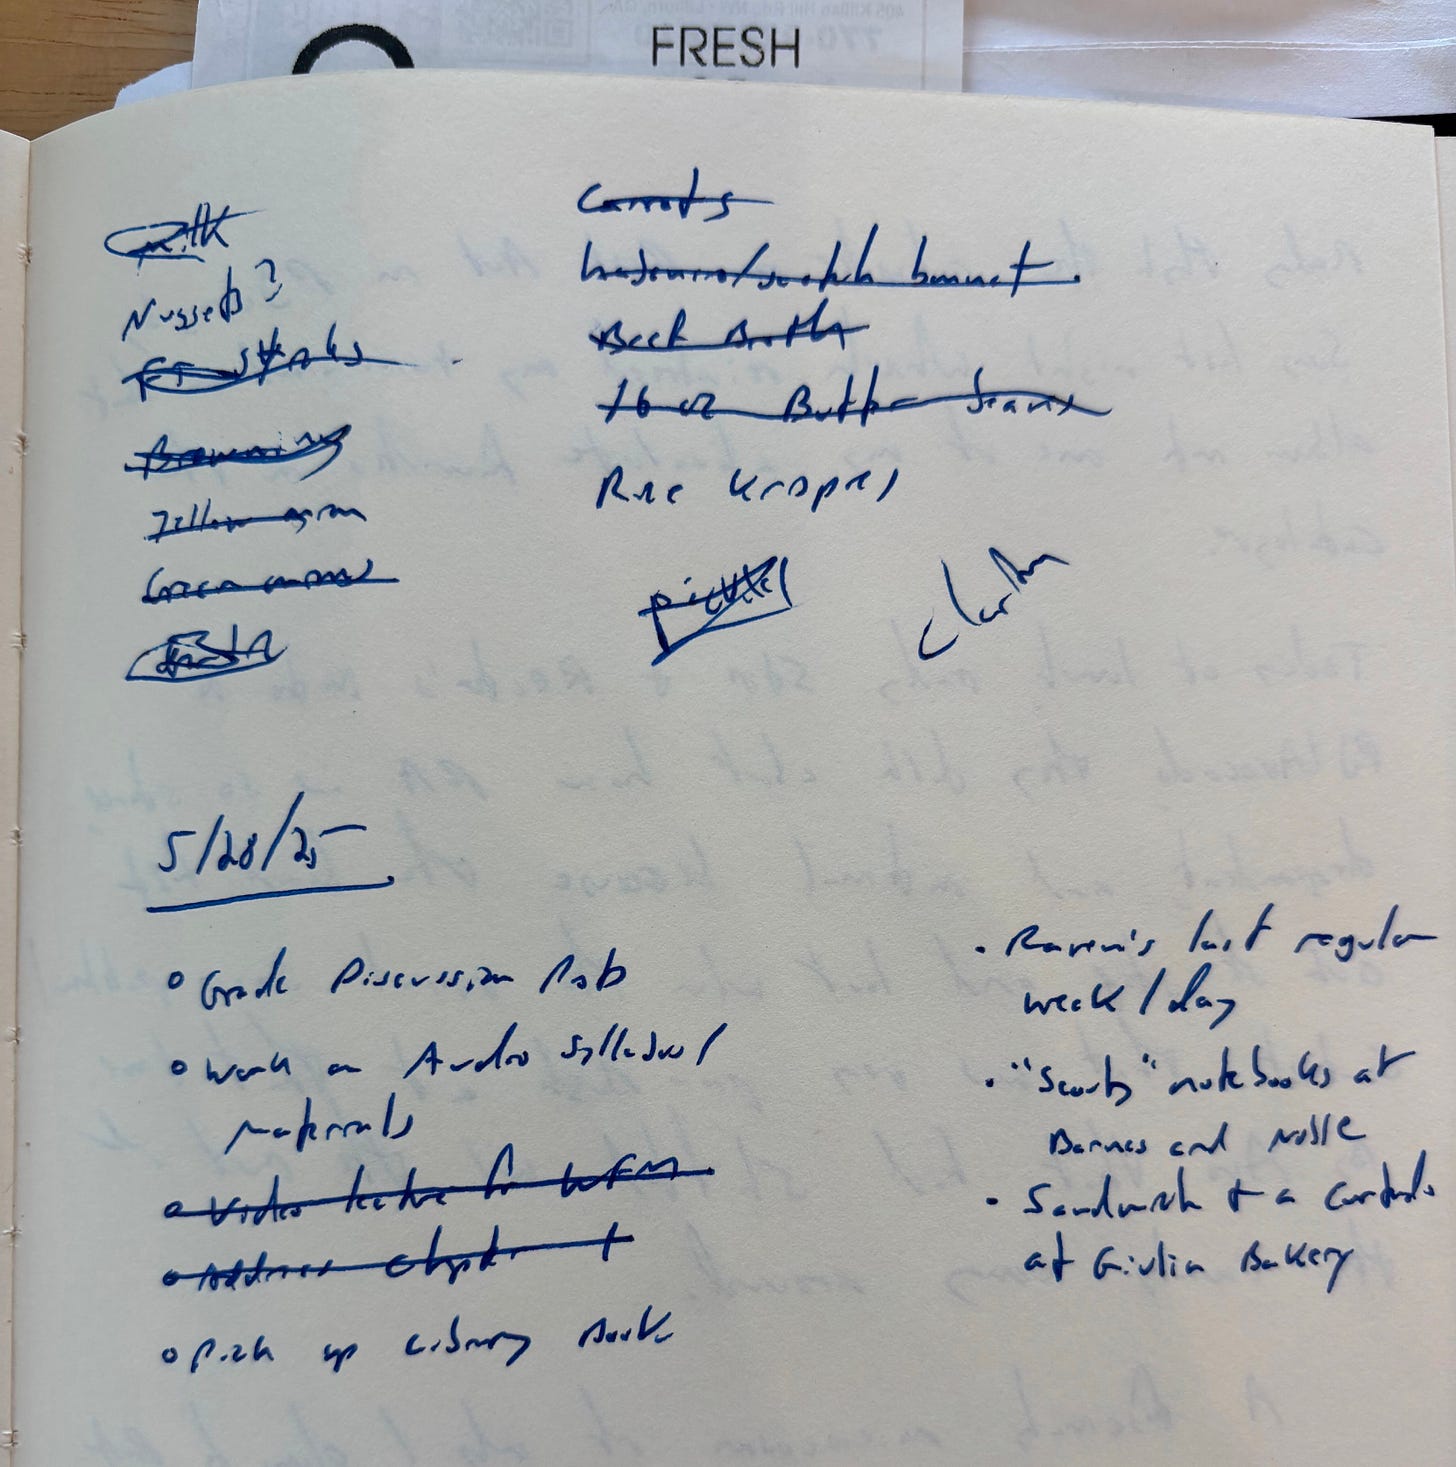 FRESH
Milk
Nuggets?
Browning
Yellow onion
Green onions
Carrots
habanero/scotch bonnet
Beef Broth
16 oz Butter beans
Rice Krispies
pickles
5/28/25
Grade Discussion Posts
Work on Audio Syllabus/
Materials
Video lecture for WFM
Address chapter 1
Pick up Library Book
Raven's last regular
week/day
"Scouts" notebooks at
Barnes and Noble
Sandwich + a Cortado
at Giulia Bakery